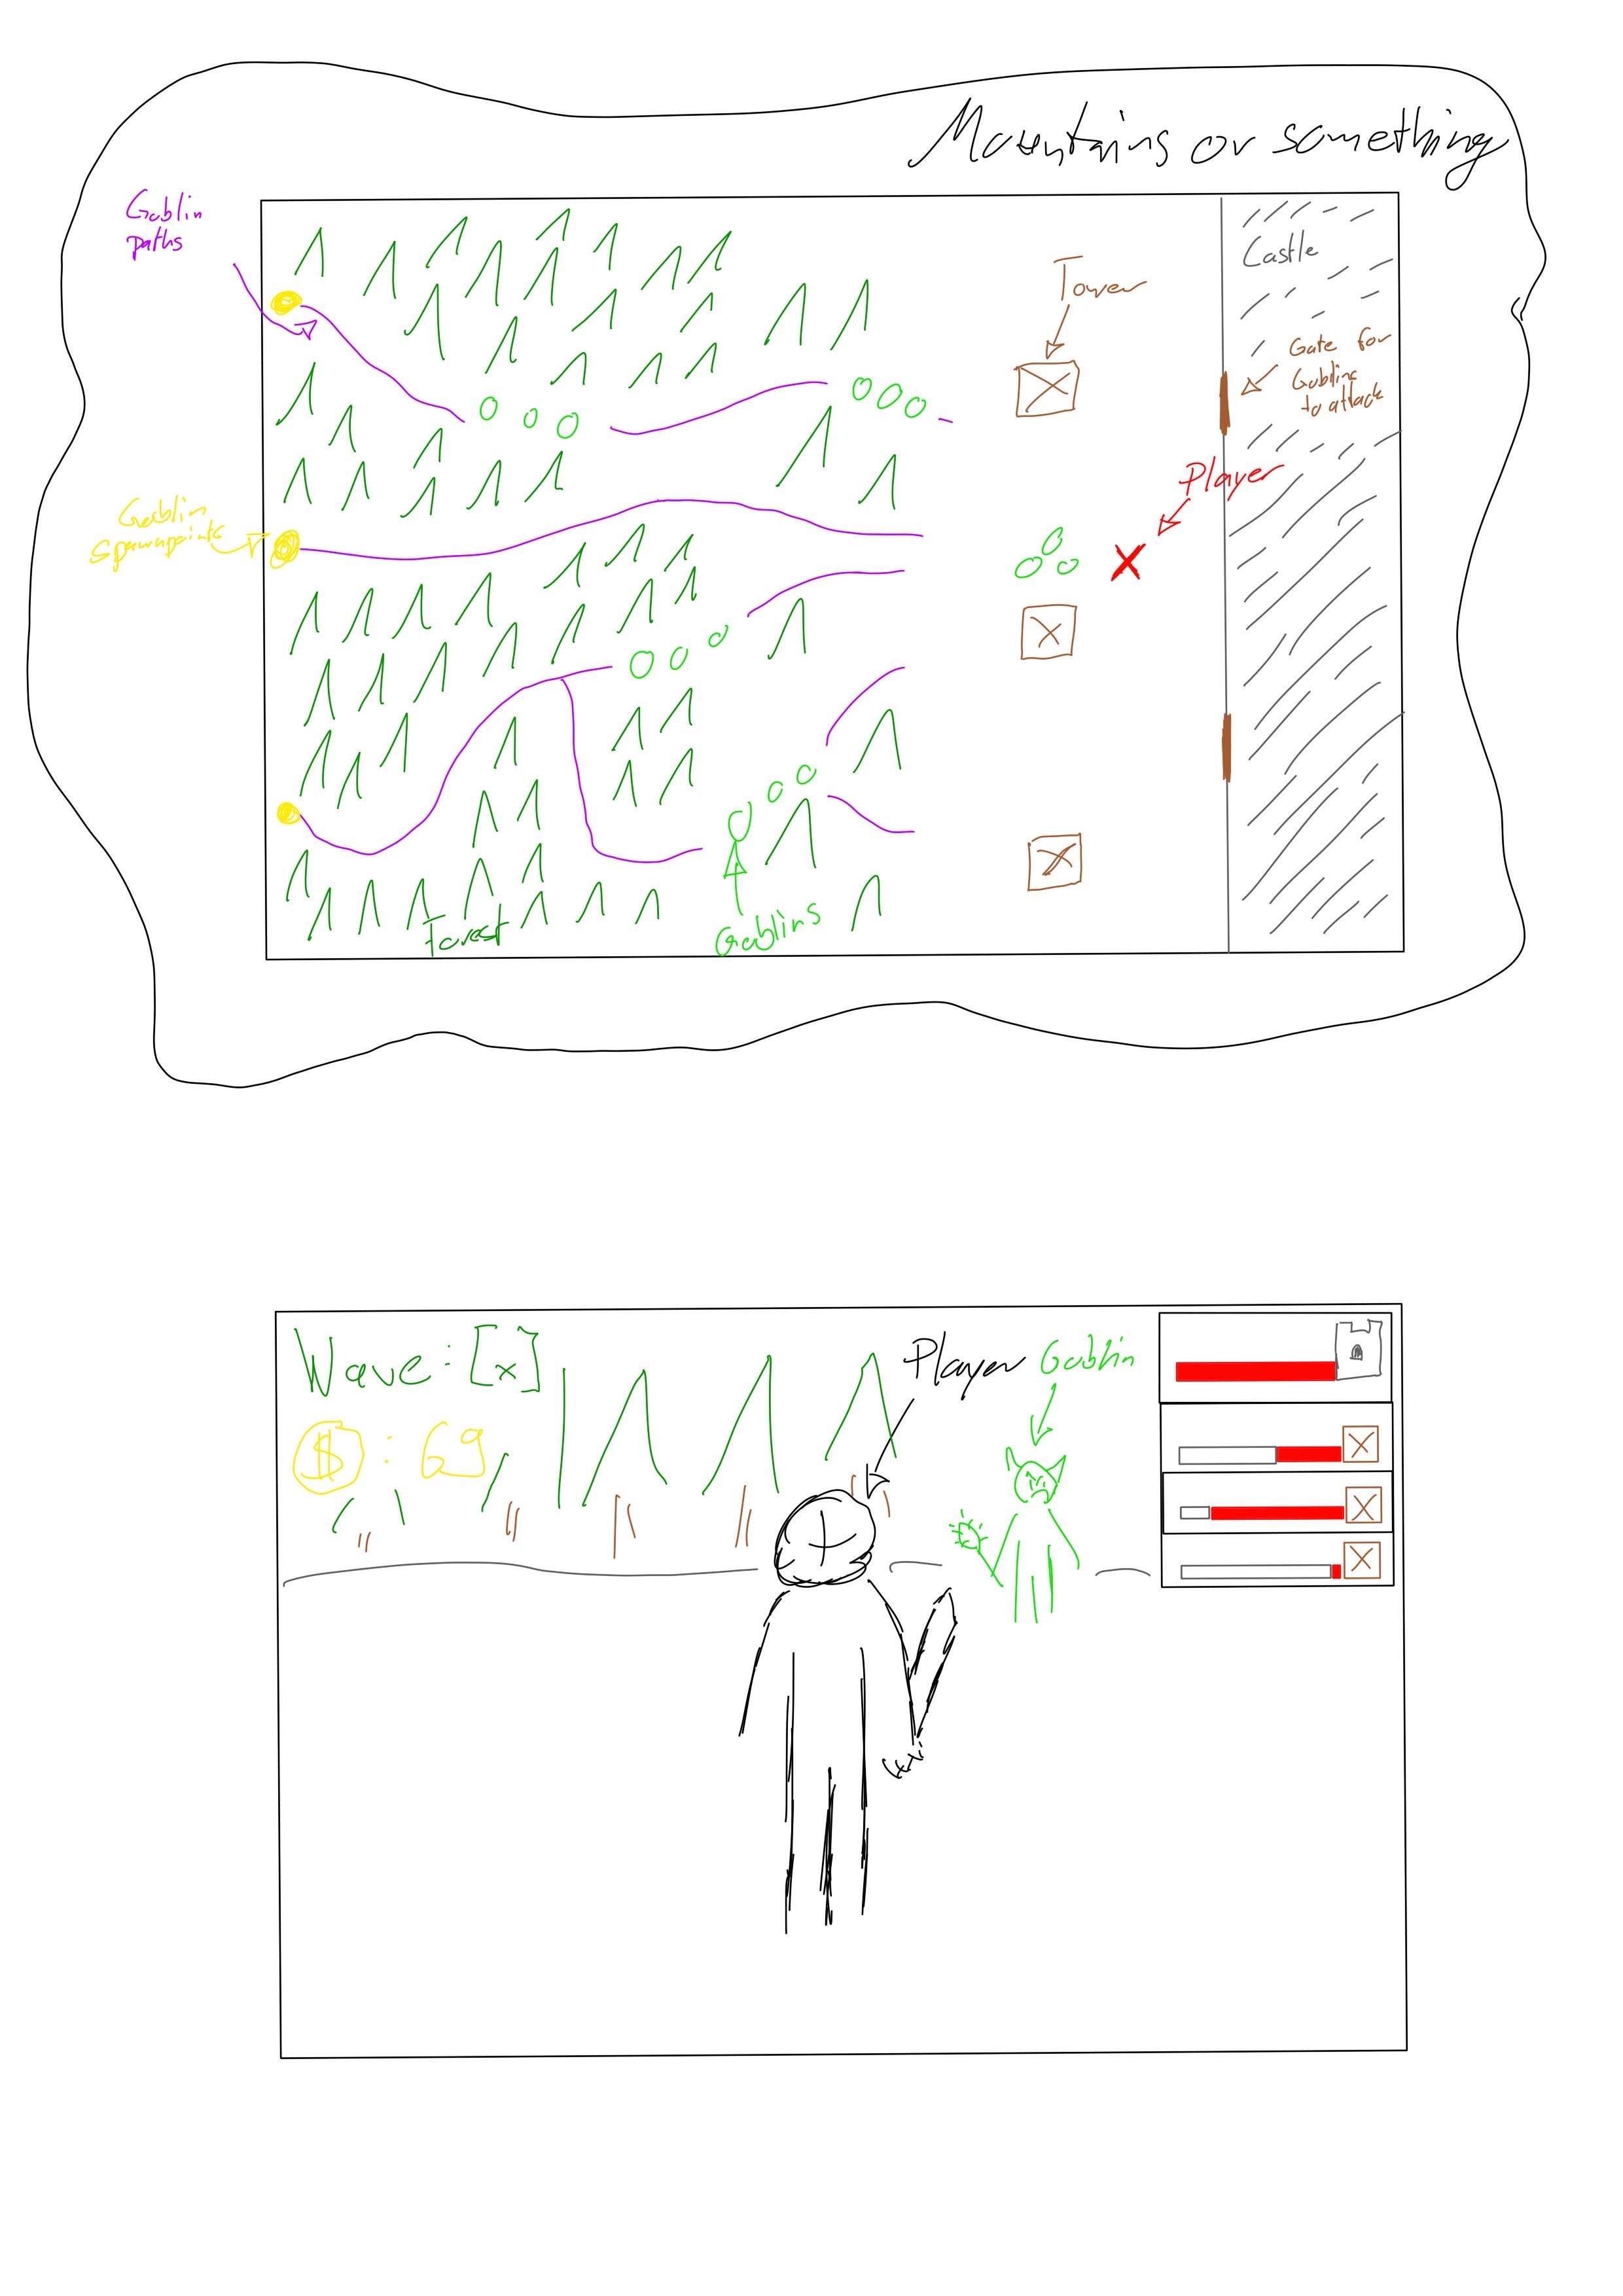 Mountains or something
Goblin
paths
Castle
Tower
Gate for
Goblins
to attack
Player
Goblin
Spawnpoints
Forest
Goblins
Wave: [x]
Player Goblin
$ : 69